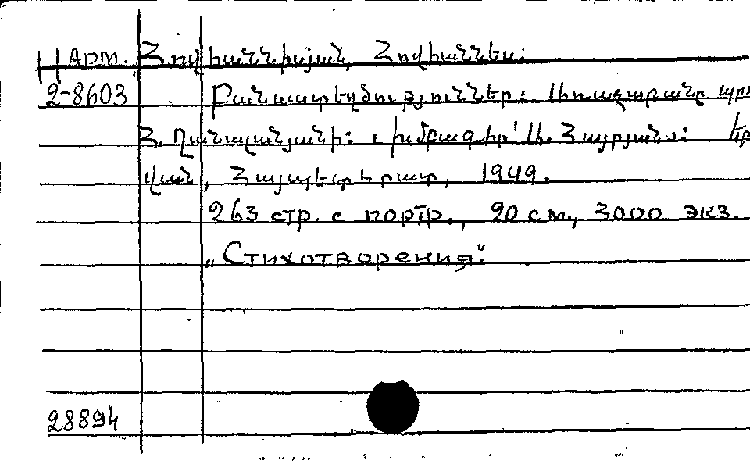 Н Арм. Հովհաննիսյան, Հովհաննես.
2-8603 Բանաստեղծություններ: Առաջաբանը
Հ. Ղանալանյանի: Խմբագիր՝ Ա. Հայրյան:
վան, Հայպետհրատ, 1949.
263 стр. с портр., 20 см, 3000 экз.
„Стихотворения“
28894